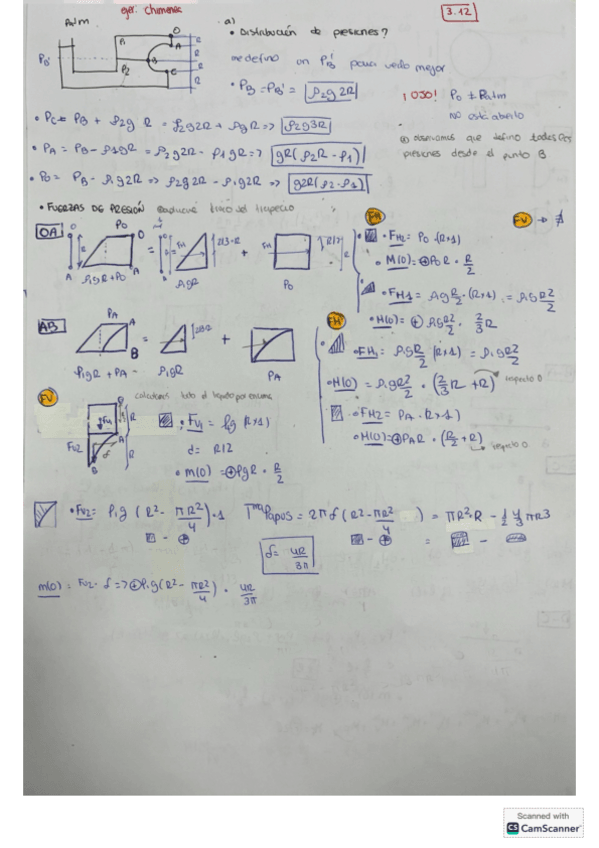 ejer. Chimenea
3.12
Patm
a)
• Distribución de presiones?
me defino un PB' para verlo mejor
• PB = PB' = ρ2g2R
¡OJO! P0 ≠ Patm
No está abierto
• Pc = PB + ρ2g R = ρ2g2R + ρgR => ρ2g3R
• PA = PB - ρ1gR = ρ2g2R - ρ1gR => gR(ρ2R - ρ1)
• P0 = PB - ρ1g2R => ρ2g2R - ρ1g2R => g2R(ρ2-ρ1)
presiones desde el punto B
• FUERZAS DE PRESIÓN
OA:
P0
ρ1gR + P0
ρ1gR
P0
FH
• FH2 = P0 · (R×1)
• M(0) = ⊕P0R · R/2
• FH1 = ρ1g R/2 · (R×1) = ρ1g R²/2
• M(0) = ⊕ ρ1g R²/2 · 2/3 R
FV → ∄
AB
PA
ρ1gR + PA
ρ1gR
PA
FH
• FH1 = ρ1g R/2 (R×1) = ρ1g R²/2
• M(0) = ρ1g R²/2 · (2/3 R + R) respecto 0
• FH2 = PA · (R×1)
• M(0) = ⊕PAR · (R/2 + R)
respecto 0
FV
calculamos todo el líquido por encima
Fv1
Fv2
• Fv1 = ρg (R×1)
d = R/2
• M(0) = ⊕ρgR · R/2
• Fv2 = ρ1g (R² - πR²/4) · 1
Tma Papus = 2πd (R² - πR²/4) = πR²·R - 1/2 4/3 πR3
d = 4R/3π
m(0) = Fv2 · d => ⊕ρ1g(R² - πR²/4) · 4R/3π
Scanned with
CS CamScanner